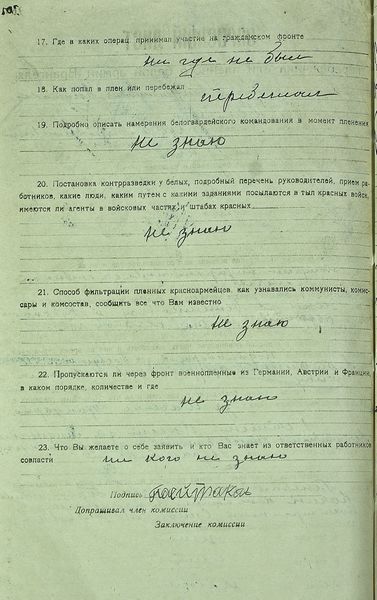 17. Где в каких операц принимал участие на гражданском фронте
ни где не был
18. Как попал в плен или перебежал
19. Подробно описать намерения белогвардейского командования в момент пленения
не знаю
20. Постановка контрразведки у белых, подробный перечень руководителей, прием ра-
ботников, какие люди, каким путем с какими заданиями посылаются в тыл красных войск,
имеются ли агенты в войсковых частях и штабах красных
не знаю
21. Способ фильтрации пленных красноармейцев, как узнавались коммунисты, комис-
сары и комсостав, сообщить все что Вам известно
не знаю
22. Пропускаются ли через фронт военнопленные из Германии, Австрии и Франции,
в каком порядке, количестве и где
не знаю
23. Что Вы желаете о себе заявить и кто Вас знает из ответственных работников
совласти ни кого не знаю
Подпись
Допрашивал член комиссии
Заключение комиссии